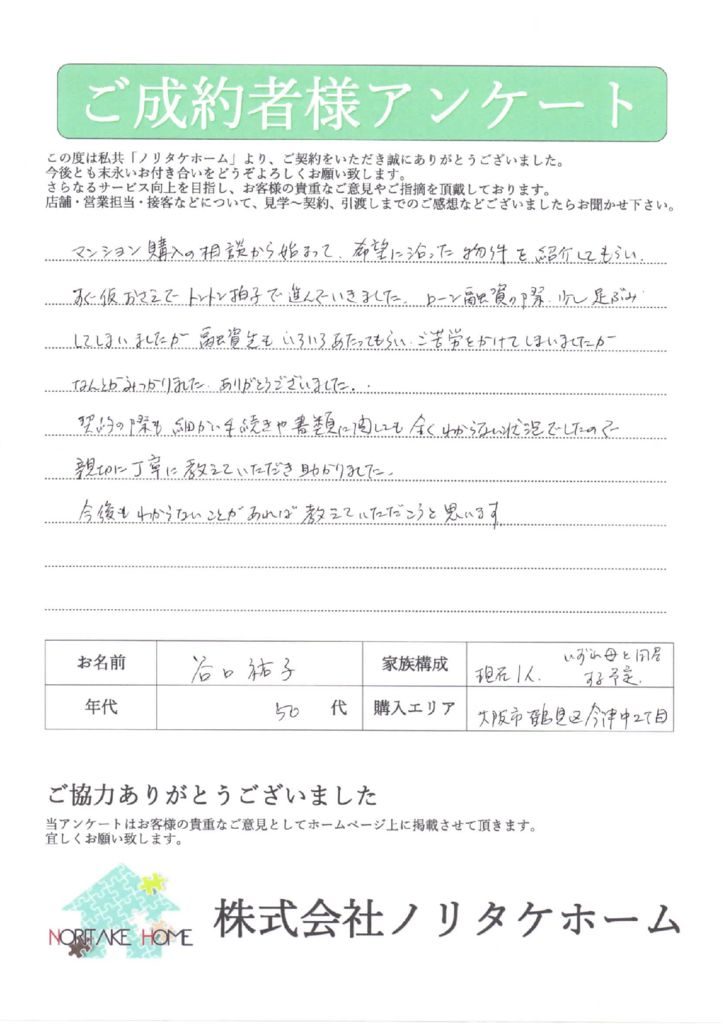 ご成約者様アンケート
この度は私共「ノリタケホーム」より、ご契約をいただき誠にありがとうございました。
今後とも末永いお付き合いをどうぞよろしくお願い致します。
さらなるサービス向上を目指し、お客様の貴重なご意見やご指摘を頂戴しております。
店舗・営業担当・接客などについて、見学～契約、引渡しまでのご感想などございましたらお聞かせ下さい。
マンション購入の相談から始まって、希望に沿った物件を紹介してもらい、
すぐ仮おさえでトントン拍子で進んでいきました。ローン融資の際、少し足ぶみ
してしまいましたが融資先もいろいろあたってもらい、ご苦労をかけてしまいましたが
なんとかみつかりました。ありがとうございました。.
契約の際も細かい手続きや書類に関しても全くわからない状況でしたので
親切に丁寧に教えていただき助かりました。
今後もわからないことがあれば教えていただこうと思います
お名前 谷口祐子 家族構成 現在1人。 いずれ母と同居する予定。
年代 50 代 購入エリア 大阪市鶴見区今津中2丁目
ご協力ありがとうございました
当アンケートはお客様の貴重なご意見としてホームページ上に掲載させて頂きます。
宜しくお願い致します。
NORITAKE HOME
株式会社ノリタケホーム